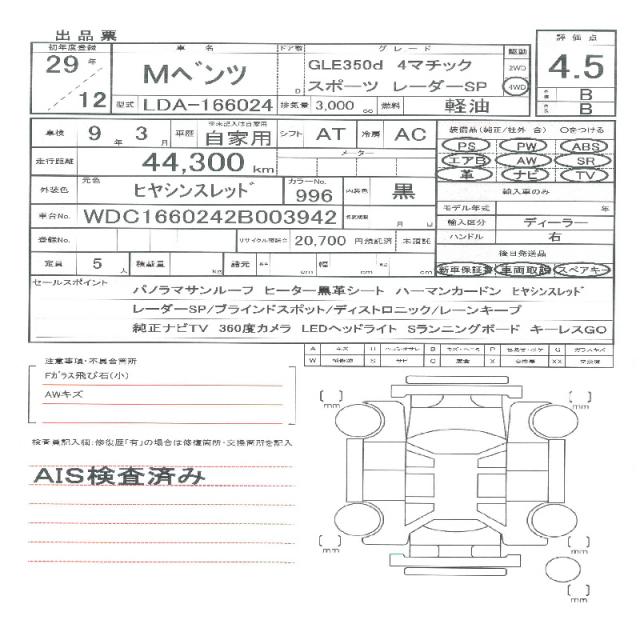 出品票
初年度登録 車名 ドア数 グレード 駆動 評価点
29年 Mベンツ D GLE350d 4マチック 2WD 4.5
/12 スポーツ レーダーSP 4WD B
型式 LDA-166024 排気量 3,000 cc 燃料 軽油 B
車検 9年 3月 車歴 ※未記入は自家用 自家用 シフト AT 冷房 AC 装備品(純正/社外 含) Oをつける
走行距離 44,300 km メーター PS PW ABS
エアB AW SR
革 ナビ TV
外装色 元色 ヒヤシンスレッド カラーNo. 996 内装色 黒 輸入車のみ
モデル年式 年
車台No. WDC1660242B003942 月 日 輸入区分 ディーラー
登録No. リサイクル預託金 20,700 円預託済 未預託 ハンドル 右
後日発送品
定員 5人 積載量 kg 諸元 長さ cm 幅 cm 高さ cm 新車保証書 車両取説 スペアキー
セールスポイント パノラマサンルーフ ヒーター黒革シート ハーマンカードン ヒヤシンスレッド
レーダーSP/ブラインドスポット/ディストロニック/レーンキープ
純正ナビTV 360度カメラ LEDヘッドライト Sランニングボード キーレスGO
A キズ U B P G ガラスキズ
W S サビ C 腐食 X XX 交換済
注意事項・不具合箇所
Fガラス飛び石(小)
AWキズ
検査員記入欄:修復歴「有」の場合は修復箇所・交換箇所を記入
AIS検査済み
mm mm
mm mm
mm